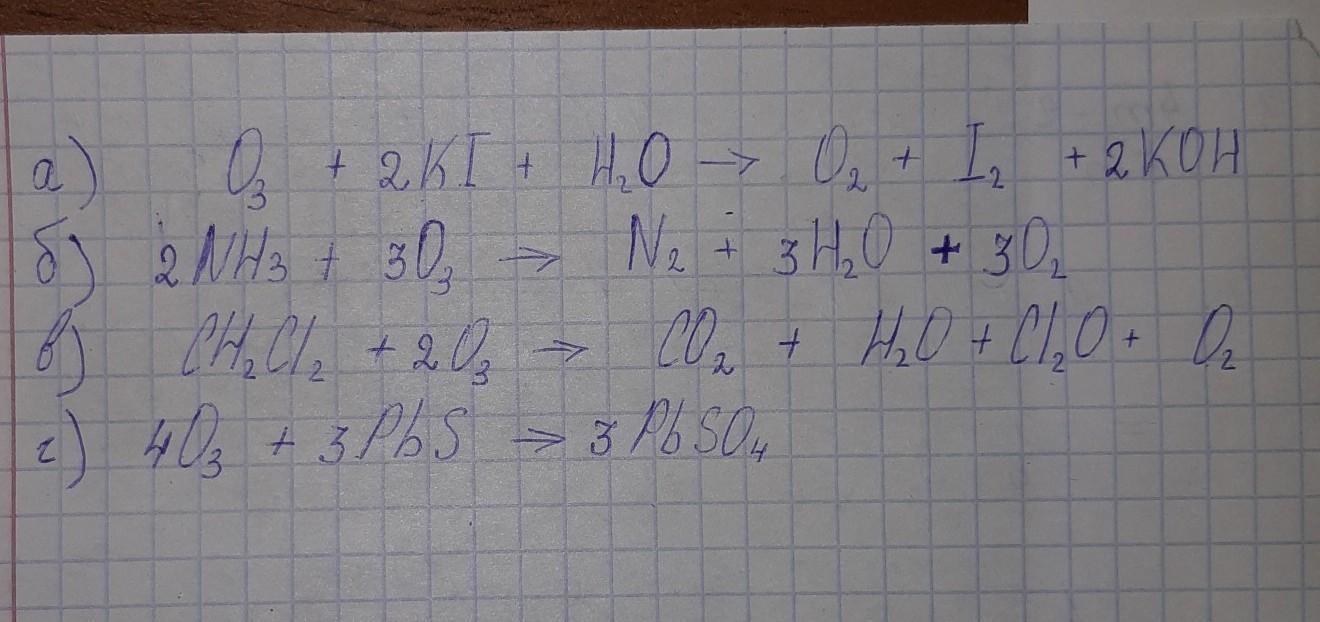 а) O₃ + 2KI + H₂O → O₂ + I₂ + 2KOH
б) 2NH₃ + 3O₃ → N₂ + 3H₂O + 3O₂
в) CH₂Cl₂ + 2O₃ → CO₂ + H₂O + Cl₂O + O₂
г) 4O₃ + 3PbS → 3PbSO₄